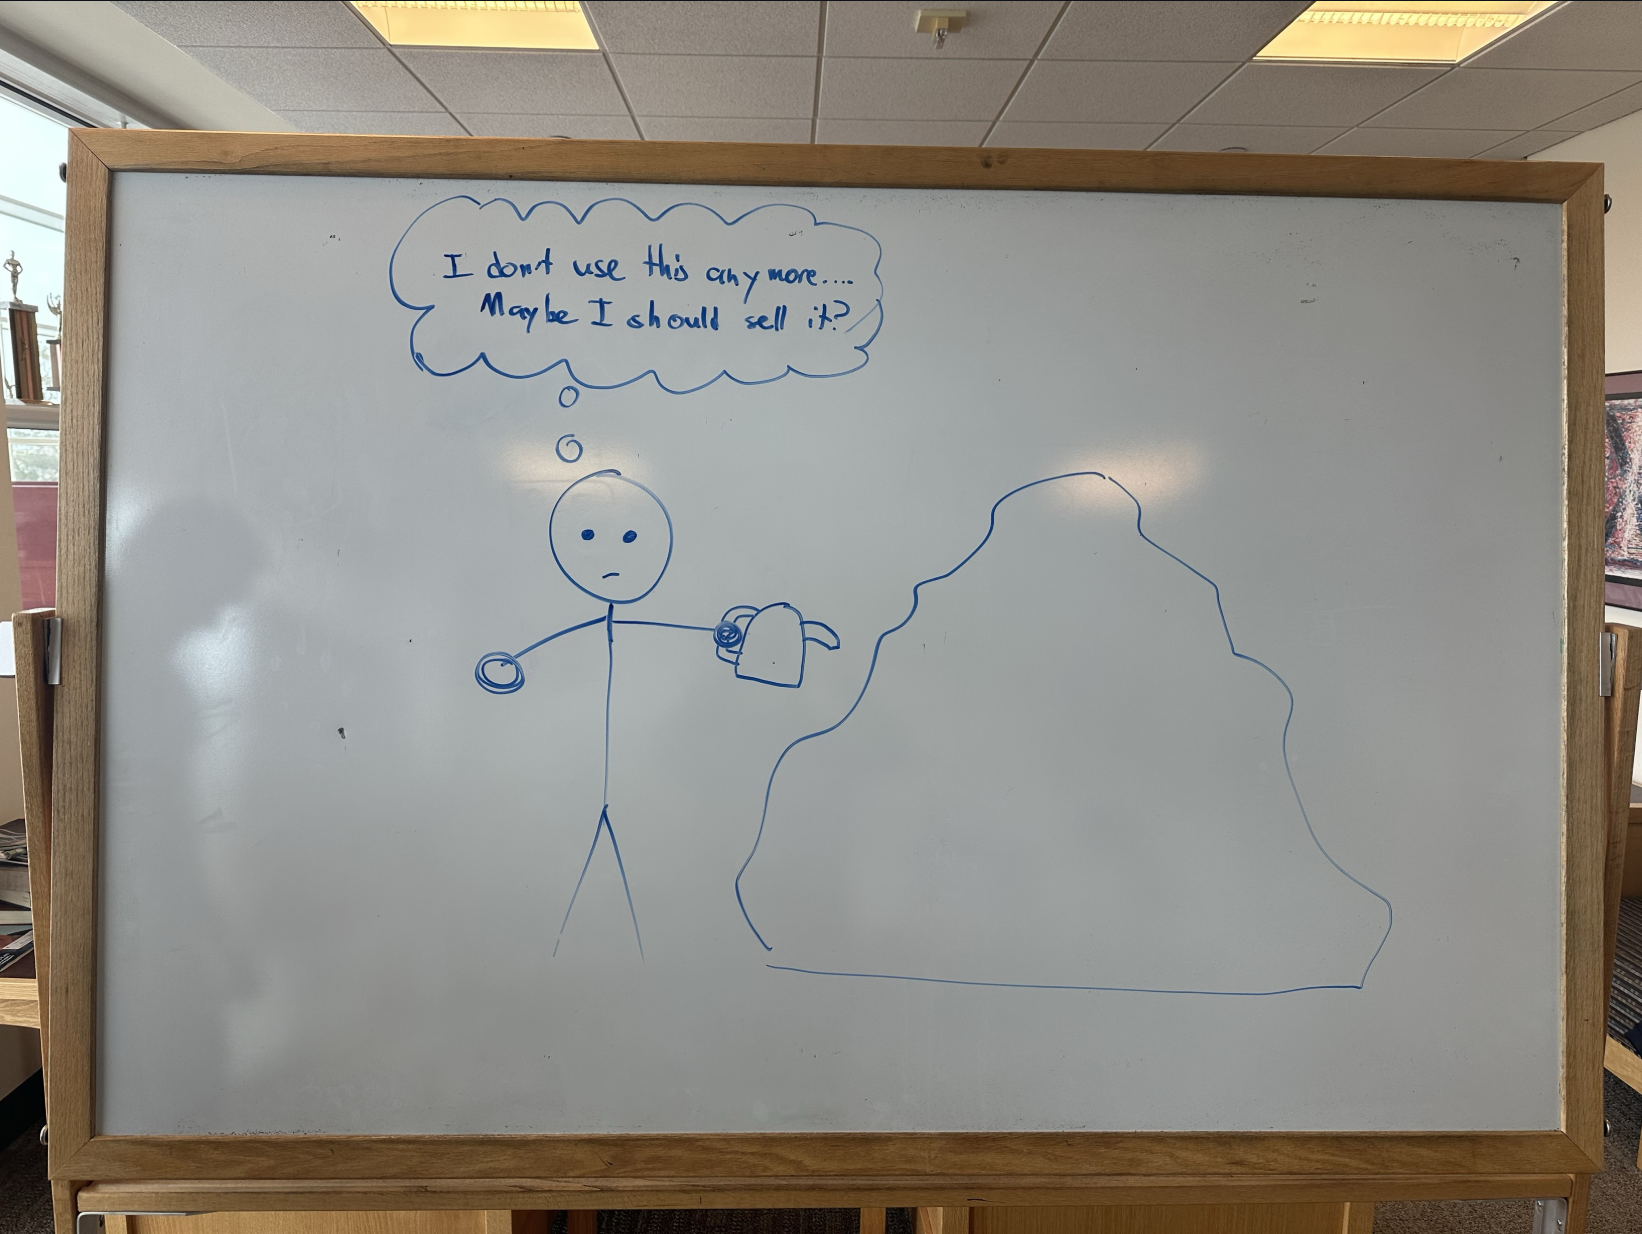 I don't use this anymore....
Maybe I should sell it?